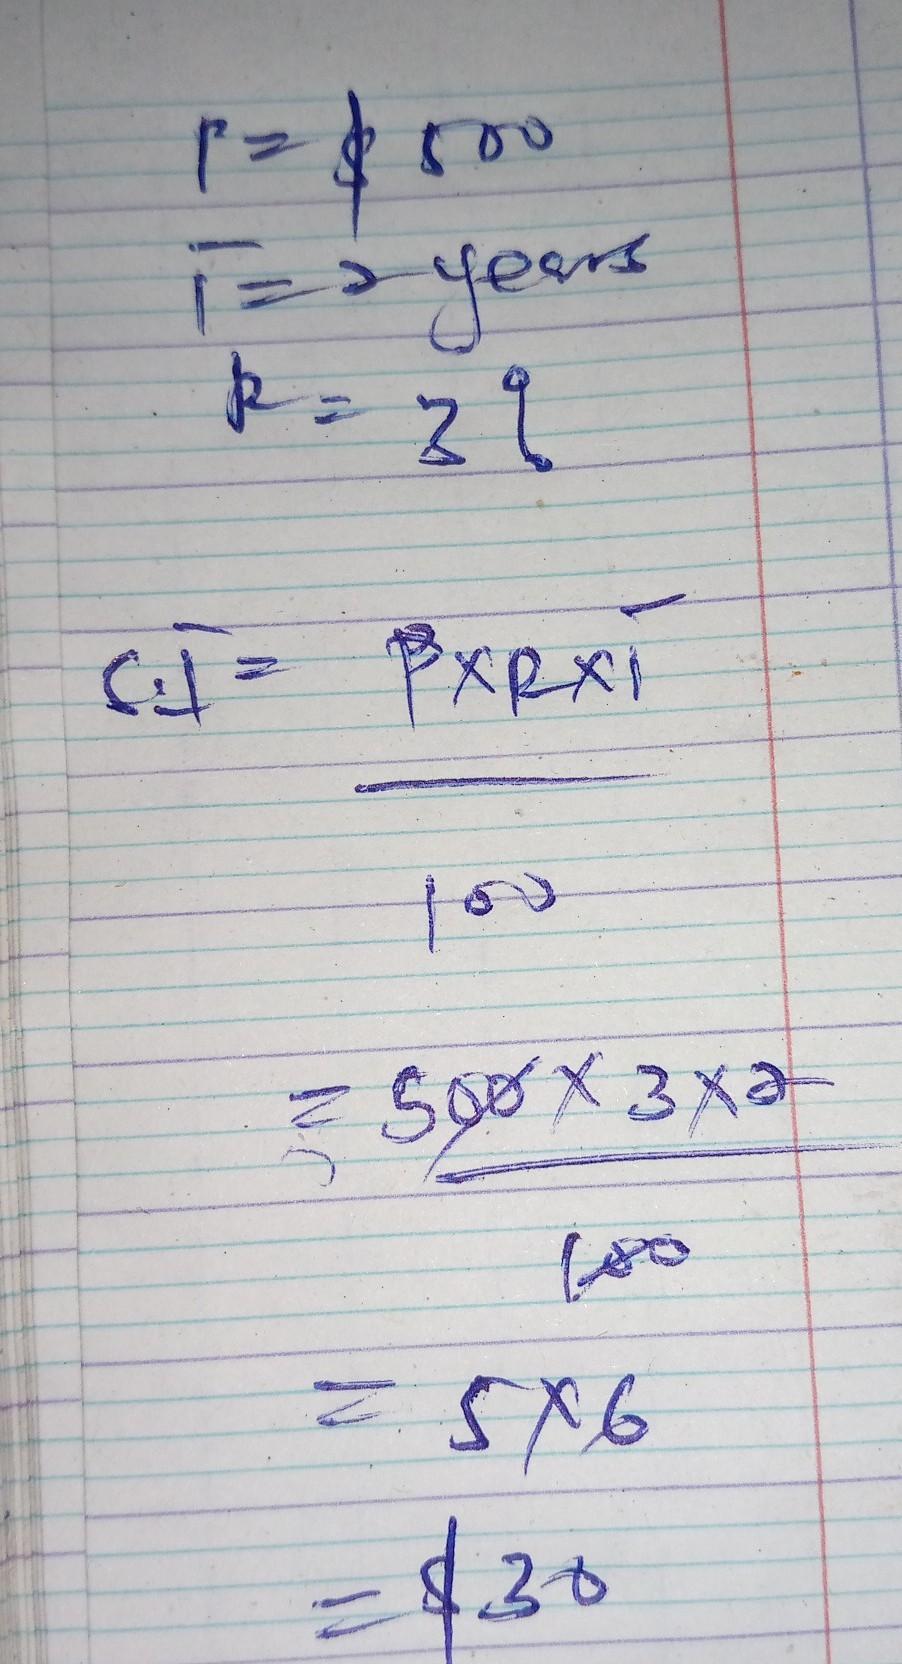 P = $ 500
T = 2 years
R = 3%
C.I = P x R x T
100
= 500 x 3 x 2
100
= 5 x 6
= $ 30